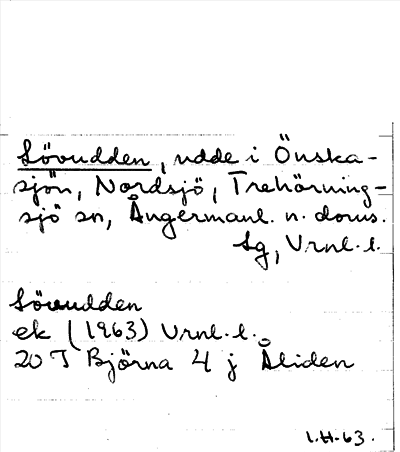 Lövudden, udde i Önska-
sjön, Nordsjö, Trehörning-
sjö sn, Ångermanl. n. doms.
Lg, Vrnl. l.
Lövudden
ek (1963) Vrnl. l.
20 J Björna 4 j Åliden
I.H-63.